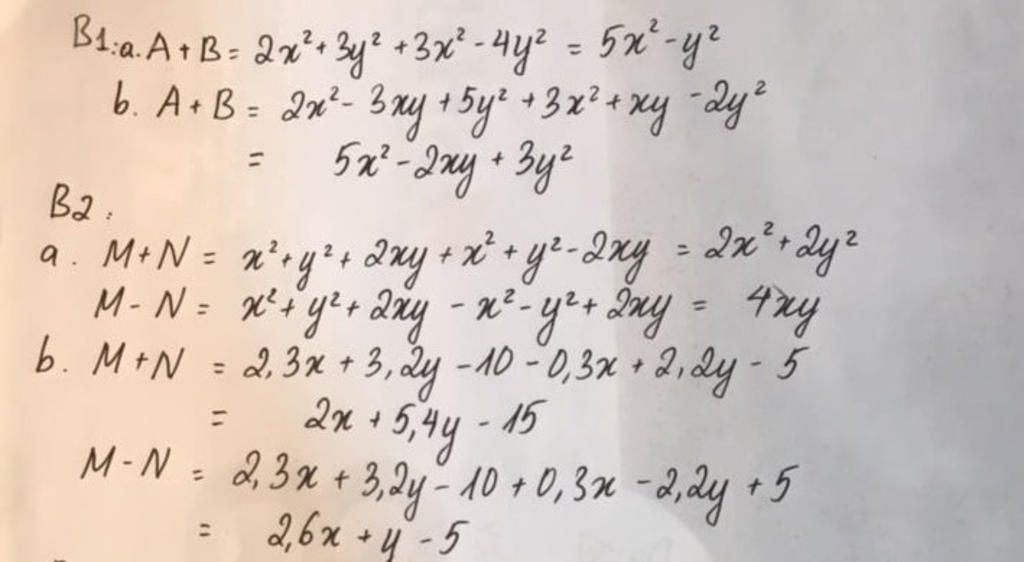 B1:a. A + B = 2x² + 3y² + 3x² - 4y² = 5x² - y²
b. A + B = 2x² - 3xy + 5y² + 3x² + xy - 2y²
= 5x² - 2xy + 3y²
B2:
a. M + N = x² + y² + 2xy + x² + y² - 2xy = 2x² + 2y²
M - N = x² + y² + 2xy - x² - y² + 2xy = 4xy
b. M + N = 2,3x + 3,2y - 10 - 0,3x + 2,2y - 5
= 2x + 5,4y - 15
M - N = 2,3x + 3,2y - 10 + 0,3x - 2,2y + 5
= 2,6x + y - 5